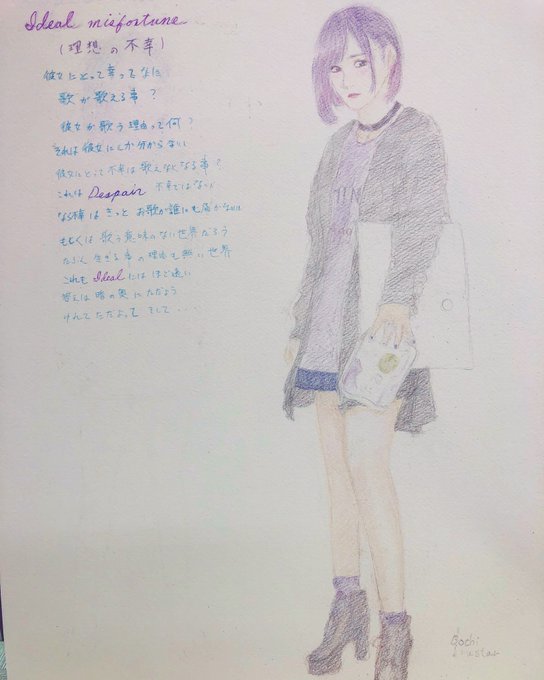 Ideal misfortune
(理想の不幸)
彼女にとって幸ってなに
歌が歌える事?
彼女が歌う理由って何?
それは彼女にしか分からない
彼女にとって不幸は歌えなくなる事?
これは Despair 不幸ではない
なら幸はきっとお歌が誰にも届かない
もしくは歌う意味のない世界だろう
たぶん生きる事の理由も無い世界
これも Ideal にはほど遠い
答えは暗の奥にただよう
ゆれてただよって そして...
Gochi